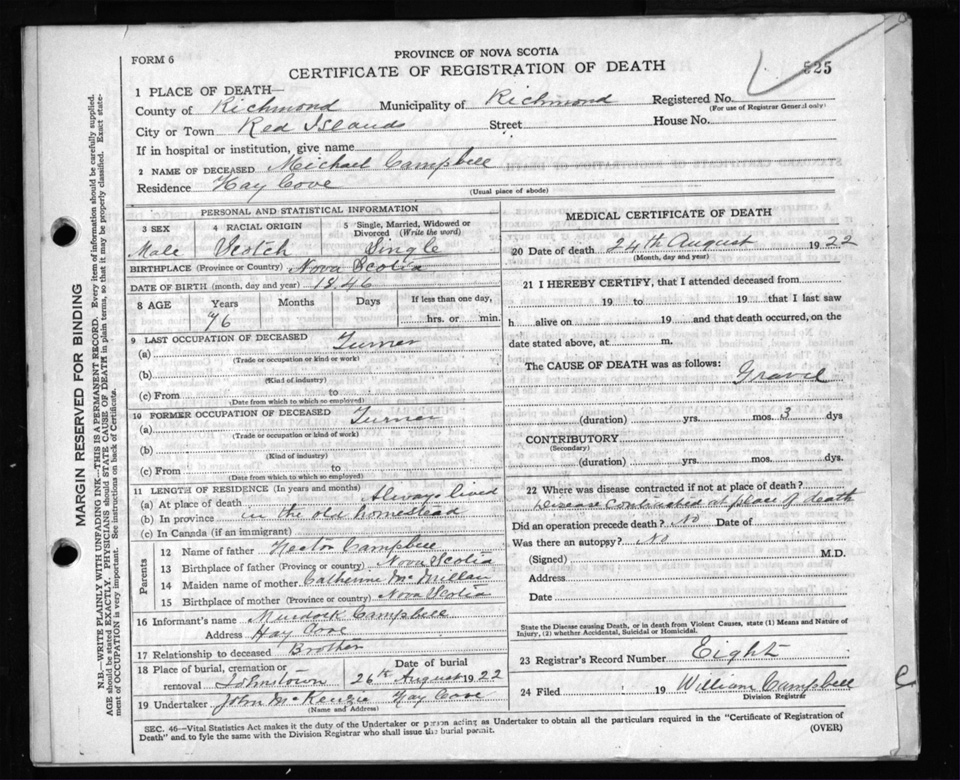 PROVINCE OF NOVA SCOTIA
FORM 6
CERTIFICATE OF REGISTRATION OF DEATH
525
1 PLACE OF DEATH—
County of Richmond Municipality of Richmond Registered No.
(For use of Registrar General only)
City or Town Red Islands Street House No.
If in hospital or institution, give name
2 NAME OF DECEASED Michael Campbell
Residence Hay Cove
(Usual place of abode)
PERSONAL AND STATISTICAL INFORMATION
3 SEX 4 RACIAL ORIGIN 5 Single, Married, Widowed or Divorced (Write the word)
Male Scotch Single
BIRTHPLACE (Province or Country) Nova Scotia
DATE OF BIRTH (month, day and year) 1846
8 AGE Years Months Days If less than one day,
76 hrs. or min.
9 LAST OCCUPATION OF DECEASED
(a)
(Trade or occupation or kind or work)
(b)
(Kind of industry)
(c) From to
(Date from which to which so employed)
10 FORMER OCCUPATION OF DECEASED
(a)
(Trade or occupation or kind or work)
(b)
(Kind of industry)
(c) From to
(Date from which so which so employed)
11 LENGTH OF RESIDENCE (In years and months)
(a) At place of death Always lived
(b) In province in the old homestead
(c) In Canada (if an immigrant)
Parents
12 Name of father Hector Campbell
13 Birthplace of father (Province or country) Nova Scotia
14 Maiden name of mother Catherine McMillan
15 Birthplace of mother (Province or country) Nova Scotia
16 Informant's name Murdock Campbell
Address Hay Cove
17 Relationship to deceased Brother
18 Place of burial, cremation or removal Johnstown
Date of burial 26th August 1922
19 Undertaker John McKenzie Hay Cove
(Name and Address)
MEDICAL CERTIFICATE OF DEATH
20 Date of death 24th August 1922
(Month, day and year)
21 I HEREBY CERTIFY, that I attended deceased from
19 to 19 that I last saw
h alive on 19 and that death occurred, on the
date stated above, at m.
The CAUSE OF DEATH was as follows:
Gravel
(duration) yrs. mos. 3 dys
CONTRIBUTORY
(Secondary)
(duration) yrs. mos. dys
22 Where was disease contracted if not at place of death?
Disease contracted at place of death
Did an operation precede death? No Date of
Was there an autopsy? No
(Signed) M.D.
Address
Date
State the Disease causing Death, or in death from Violent Causes, state (1) Means and Nature of
Injury, (2) whether Accidental, Suicidal or Homicidal.
23 Registrar's Record Number Eight
24 Filed 19 William Campbell
Division Registrar
SEC. 46—Vital Statistics Act makes it the duty of the Undertaker or person acting as Undertaker to obtain all the particulars required in the "Certificate of Registration of
Death" and to fyle the same with the Division Registrar who shall issue the burial permit.
(OVER)
MARGIN RESERVED FOR BINDING
N.B.—WRITE PLAINLY WITH UNFADING INK—THIS IS A PERMANENT RECORD. Every item of information should be carefully supplied.
AGE should be stated EXACTLY. PHYSICIANS should STATE CAUSE OF DEATH in plain terms, so that it may be properly classified. Exact statement of OCCUPATION is very important. See instructions on back of Certificate.